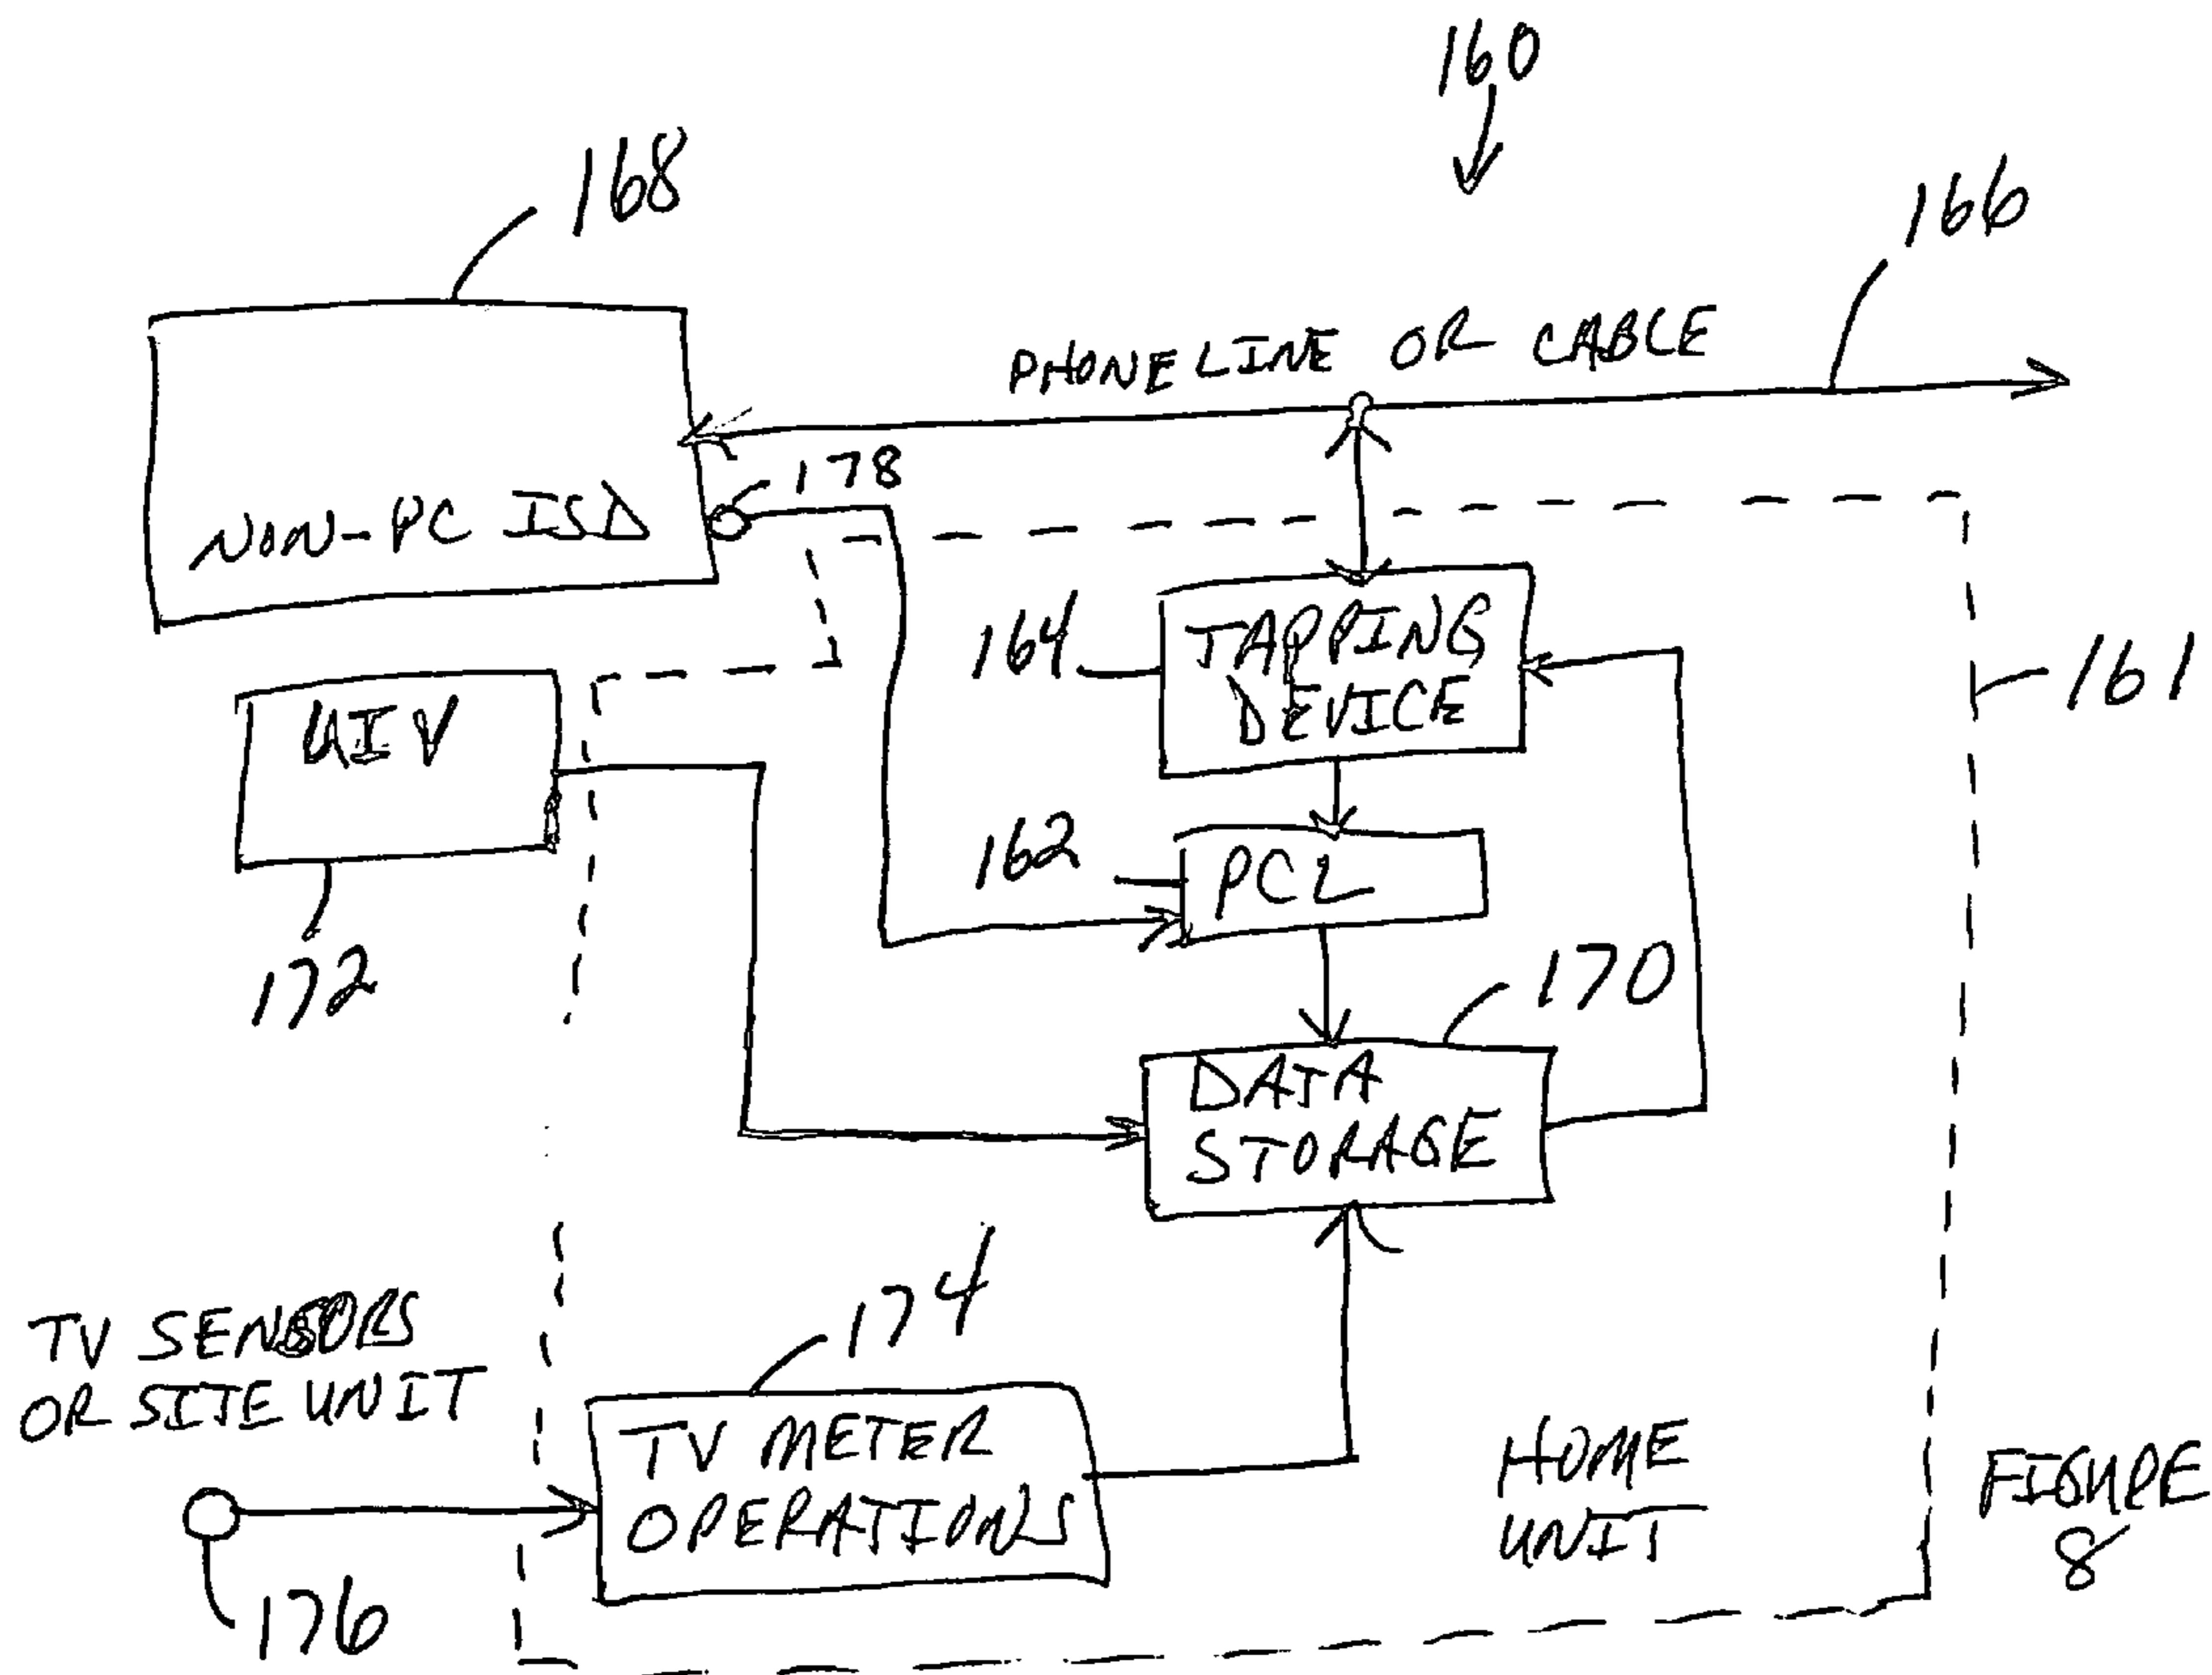 160
168
166
PHONE LINE OR CABLE
178
NON-PC ISD
164
TAPPING
DEVICE
161
UIV
162
PCL
172
170
DATA
STORAGE
174
TV SENSORS
OR SITE UNIT
TV METER
OPERATIONS
HOME
UNIT
FIGURE
8
176